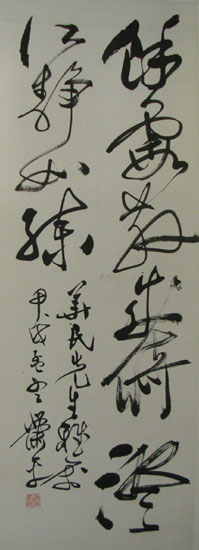 餘霞散成綺澄
江靜如練
華民先生雅
甲戌孟冬蕭平